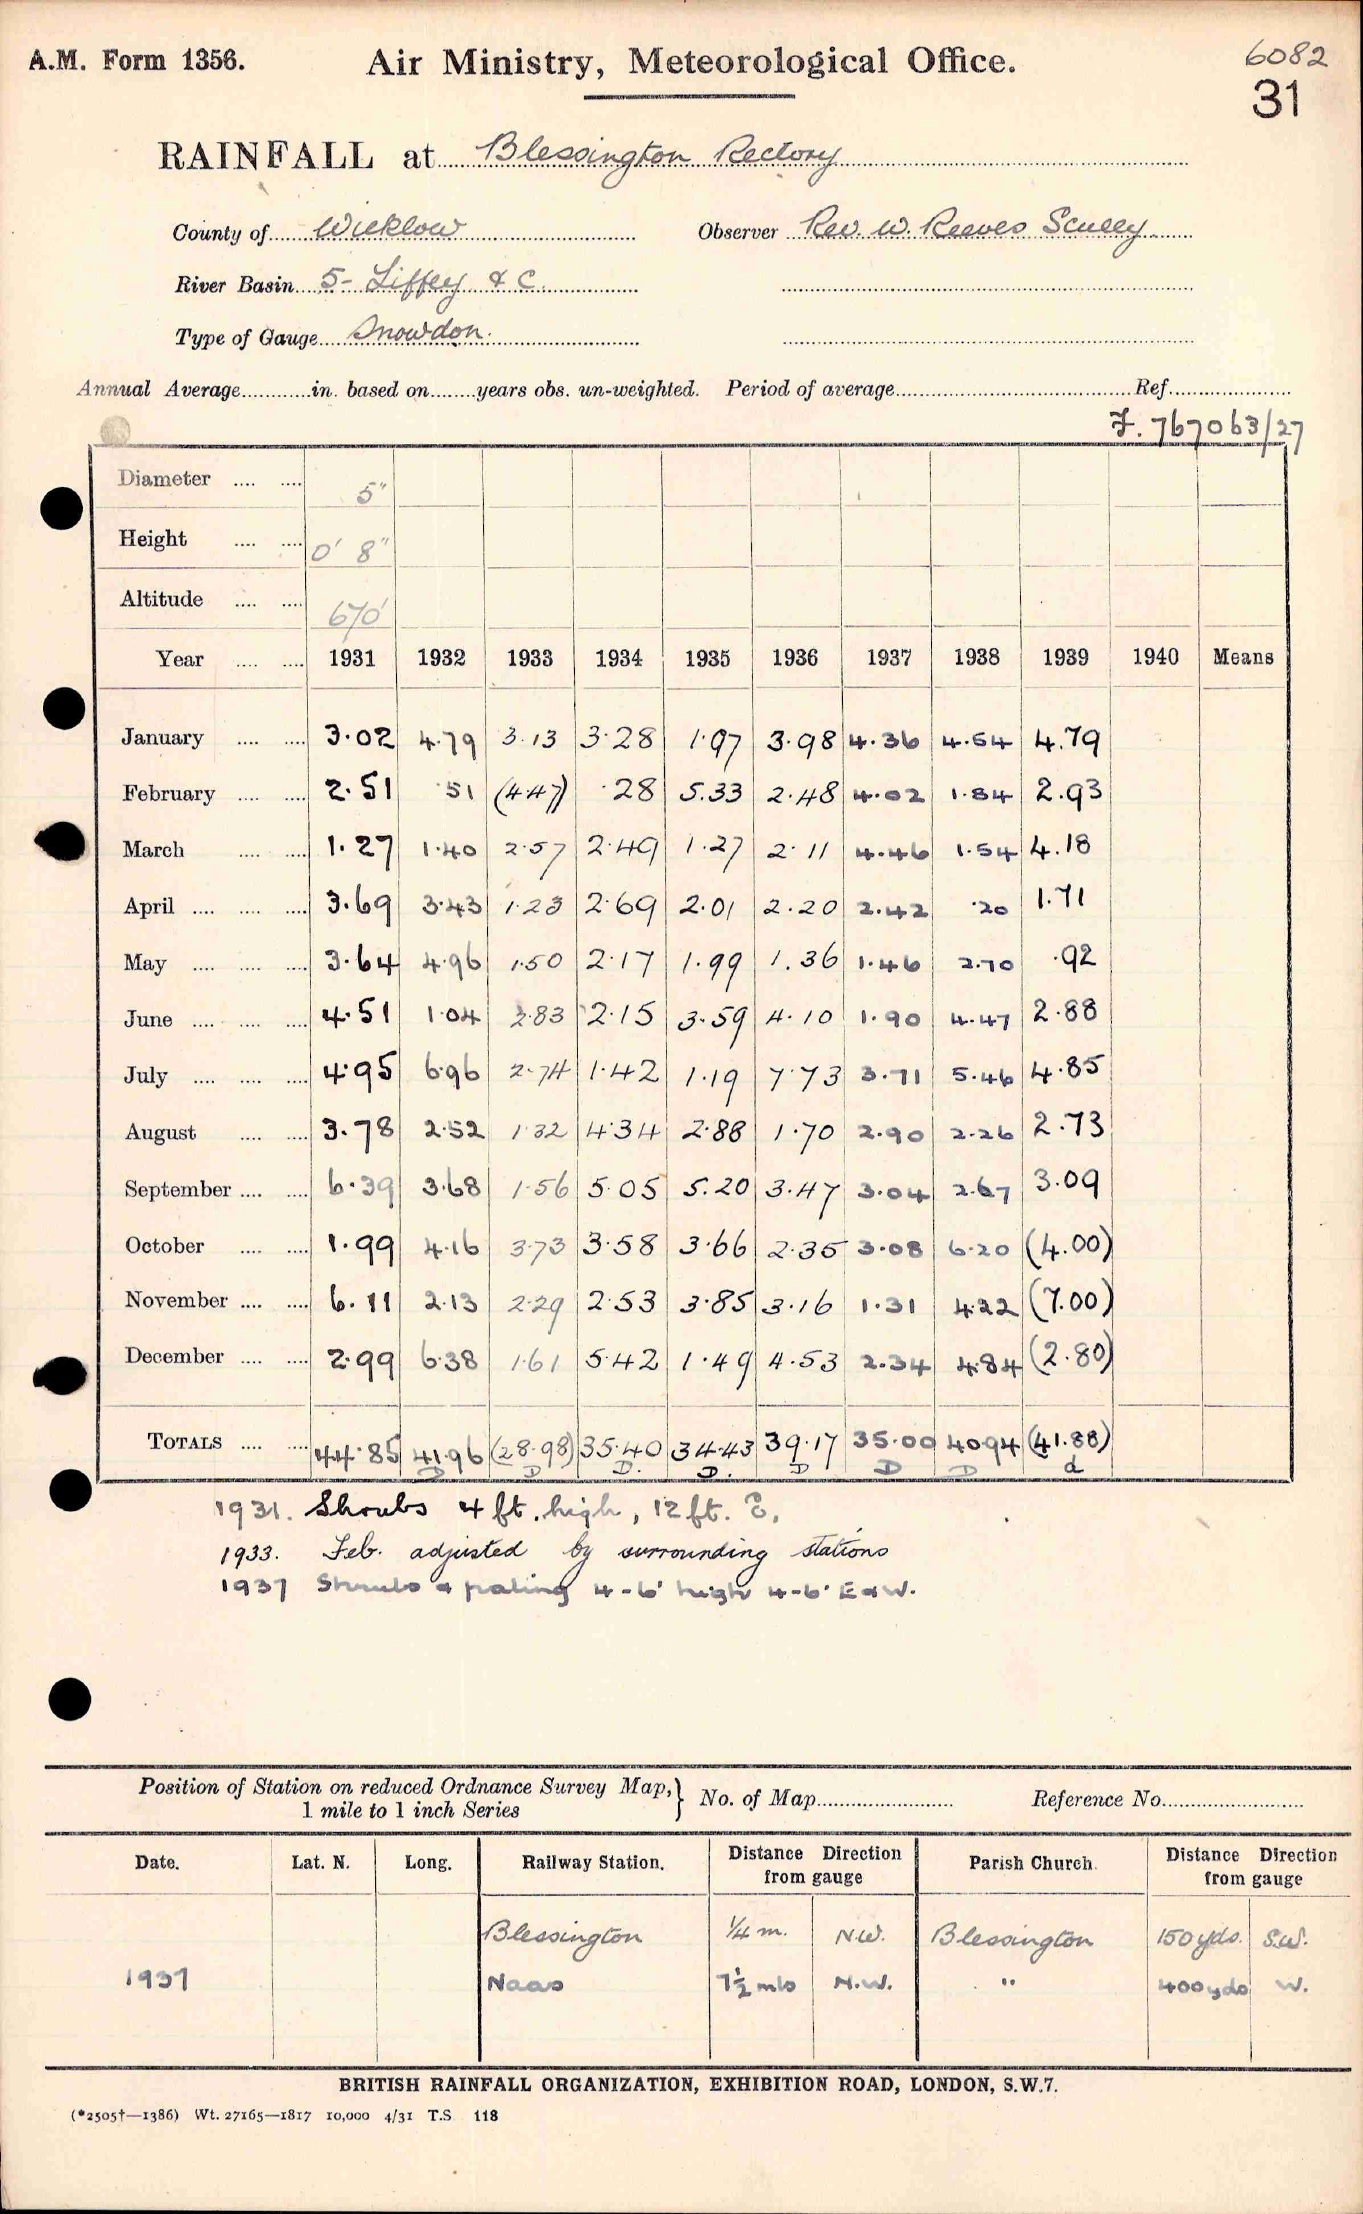 A.M. Form 1356. Air Ministry, Meteorological Office. 6082
31
RAINFALL at Blessington Rectory
County of Wicklow Observer Rev. W. Reeves Scully
River Basin 5- Liffey & C.
Type of Gauge Snowdon.
Annual Average............in. based on........years obs. un-weighted. Period of average........................Ref.................
F. 767063/27
Diameter .... .... 5"
Height .... .... 0' 8"
Altitude .... .... 670'
Year .... .... 1931 1932 1933 1934 1935 1936 1937 1938 1939 1940 Means
January .... .... 3.02 4.79 3.13 3.28 1.97 3.98 4.36 4.54 4.79
February .... .... 2.51 .51 (4.47) .28 5.33 2.48 4.02 1.84 2.93
March .... .... 1.27 1.40 2.57 2.49 1.27 2.11 4.46 1.54 4.18
April .... .... .... 3.69 3.43 1.23 2.69 2.01 2.20 2.42 .20 1.71
May .... .... .... 3.64 4.96 1.50 2.17 1.99 1.36 1.46 2.70 .92
June .... .... .... 4.51 1.04 2.83 2.15 3.59 4.10 1.90 4.47 2.88
July .... .... .... 4.95 6.96 2.74 1.42 1.19 7.73 3.71 5.46 4.85
August .... .... 3.78 2.52 1.32 4.34 2.88 1.70 2.90 2.26 2.73
September .... .... 6.39 3.68 1.56 5.05 5.20 3.47 3.04 2.67 3.09
October .... .... 1.99 4.16 3.73 3.58 3.66 2.35 3.08 6.20 (4.00)
November .... .... 6.11 2.13 2.29 2.53 3.85 3.16 1.31 4.22 (7.00)
December .... .... 2.99 6.38 1.61 5.42 1.49 4.53 2.34 4.84 (2.80)
TOTALS .... .... 44.85 41.96 (28.98) 35.40 34.43 39.17 35.00 40.94 (41.88)
D D D. D. D D D d
1931. Shrubs 4 ft. high, 12 ft. E.
1933. Feb. adjusted by surrounding stations
1937 Shrubs & paling 4-6' high 4-6' E & W.
Position of Station on reduced Ordnance Survey Map,} No. of Map........................ Reference No.........................
1 mile to 1 inch Series
Date. Lat. N. Long. Railway Station. Distance Direction from gauge Parish Church. Distance Direction from gauge
Blessington 1/4 m. N.W. Blessington 150 yds. S.W.
1937 Naas 7 1/2 mls N.W. " 400 yds W.
BRITISH RAINFALL ORGANIZATION, EXHIBITION ROAD, LONDON, S.W.7.
(*2505†—1386) Wt. 27165—1817 10,000 4/31 T.S 118